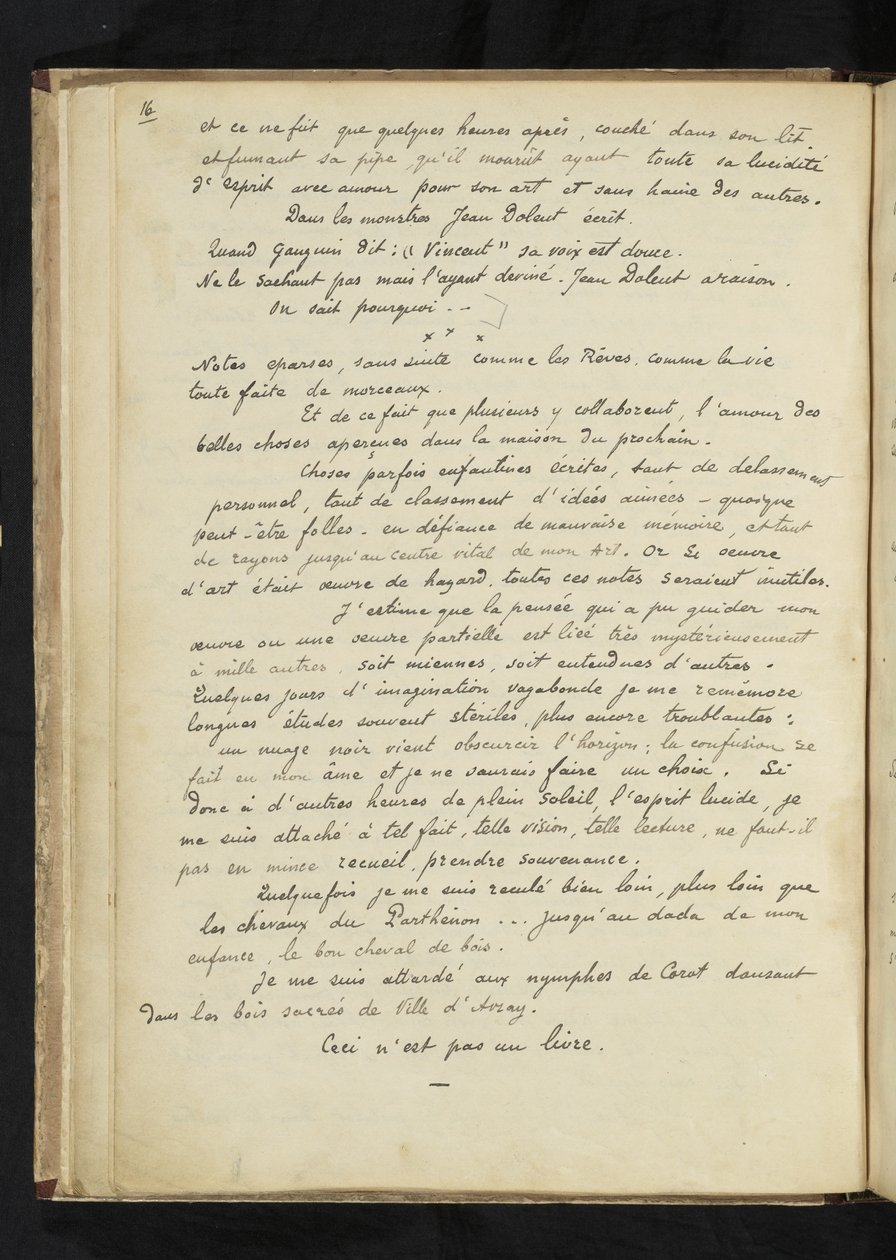 16
et ce ne fut que quelques heures après, couché dans son lit
et fumant sa pipe, qu'il mourût ayant toute sa lucidité
d'esprit avec amour pour son art et sans haine des autres.
Dans les monstres Jean Dolent écrit.
Quand Gauguin dit : "Vincent" sa voix est douce.
Ne le sachant pas mais l'ayant deviné. Jean Dolent a raison.
On sait pourquoi . --
x x x
Notes eparses, sans suite comme les Rêves, comme la vie
toute faite de morceaux.
Et de ce fait que plusieurs y collaborent, l'amour des
belles choses aperçues dans la maison du prochain.
Choses parfois enfantines écrites, tant de delassement
personnel, tant de classement d'idées aimées – quoique
peut-être folles – en défiance de mauvaise mémoire, et tant
de rayons jusqu'au centre vital de mon Art. Or si oeuvre
d'art était œuvre de hazard, toutes ces notes seraient inutiles.
J'estime que la pensée qui a pu guider mon
œuvre ou une oeuvre partielle est liéé très mystérieusement
à mille autres, soit miennes, soit entendues d'autres.
Quelques jours d'imagination vagabonde je me remémore
longues études souvent stériles, plus encore troublantes :
un nuage noir vient obscurcir l'horizon ; la confusion se
fait en mon âme et je ne saurais faire un choix. Si
donc à d'autres heures de plein soleil, l'esprit lucide, je
me suis attaché à tel fait, telle vision, telle lecture, ne faut-il
pas en mince recueil, prendre souvenance.
Quelquefois je me suis reculé bien loin, plus loin que
les chevaux du Parthénon ... jusqu'au dada de mon
enfance, le bon cheval de bois.
Je me suis attardé aux nymphes de Corot dansant
dans les bois sacrés de Ville d'Avray.
Ceci n'est pas un livre.